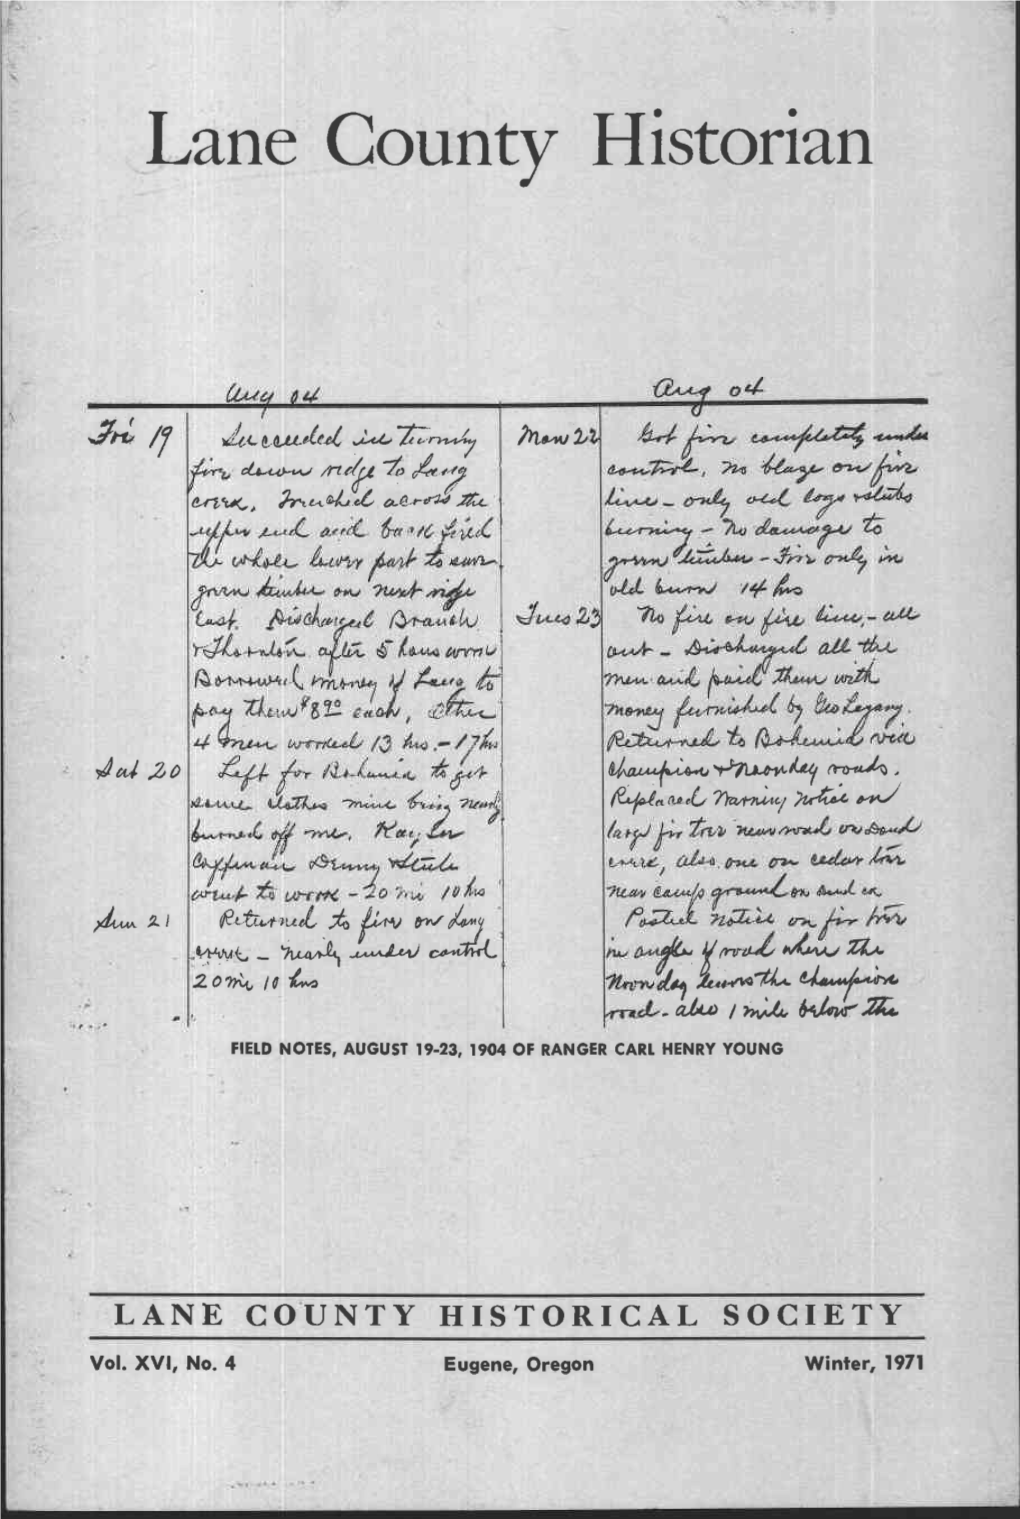 Lane County Historian
Aug 04
Fri 19 Succeeded in turning
fire down ridge to Lang
creek. Trenched across the
upper end and back fired
the whole lower part to save
green timber on next ridge
East. Discharged Branch
& Thornton after 5 hours work
Borrowed money of Lang to
pay them $8.90 each, Other
4 men worked 13 hrs. - 17 hrs
Sat 20 Left for Bohemia to get
some clothes mine being nearly
burned off me.
Coffman Denny & Stule
went to work - 20 mi 10 hrs
Sun 21 Returned to fire on Lang
creek - nearly under control
20 mi 10 hrs
Aug 04
Mon 22 Got fire completely under
control, no blaze on fire
line - only old logs & stubs
burning - No damage to
green timber - Fire only in
old burn 14 hrs
Tues 23 No fire on fire line, - all
out - Discharged all the
men and paid them with
money furnished by Geo Legany.
Returned to Bohemia via
Champion & Noonday roads.
Replaced Warning notice on
large fir tree near road on
creek, also one on cedar tree
near camp ground on
Posted notice on fir tree
in angle of road where the
Noonday leaves the Champion
road - also 1 mile below the
FIELD NOTES, AUGUST 19-23, 1904 OF RANGER CARL HENRY YOUNG
LANE COUNTY HISTORICAL SOCIETY
Vol. XVI, No. 4 Eugene, Oregon Winter, 1971